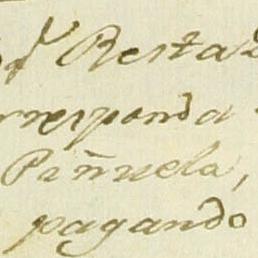 Resta
rresponda
Piñuela,
pagando